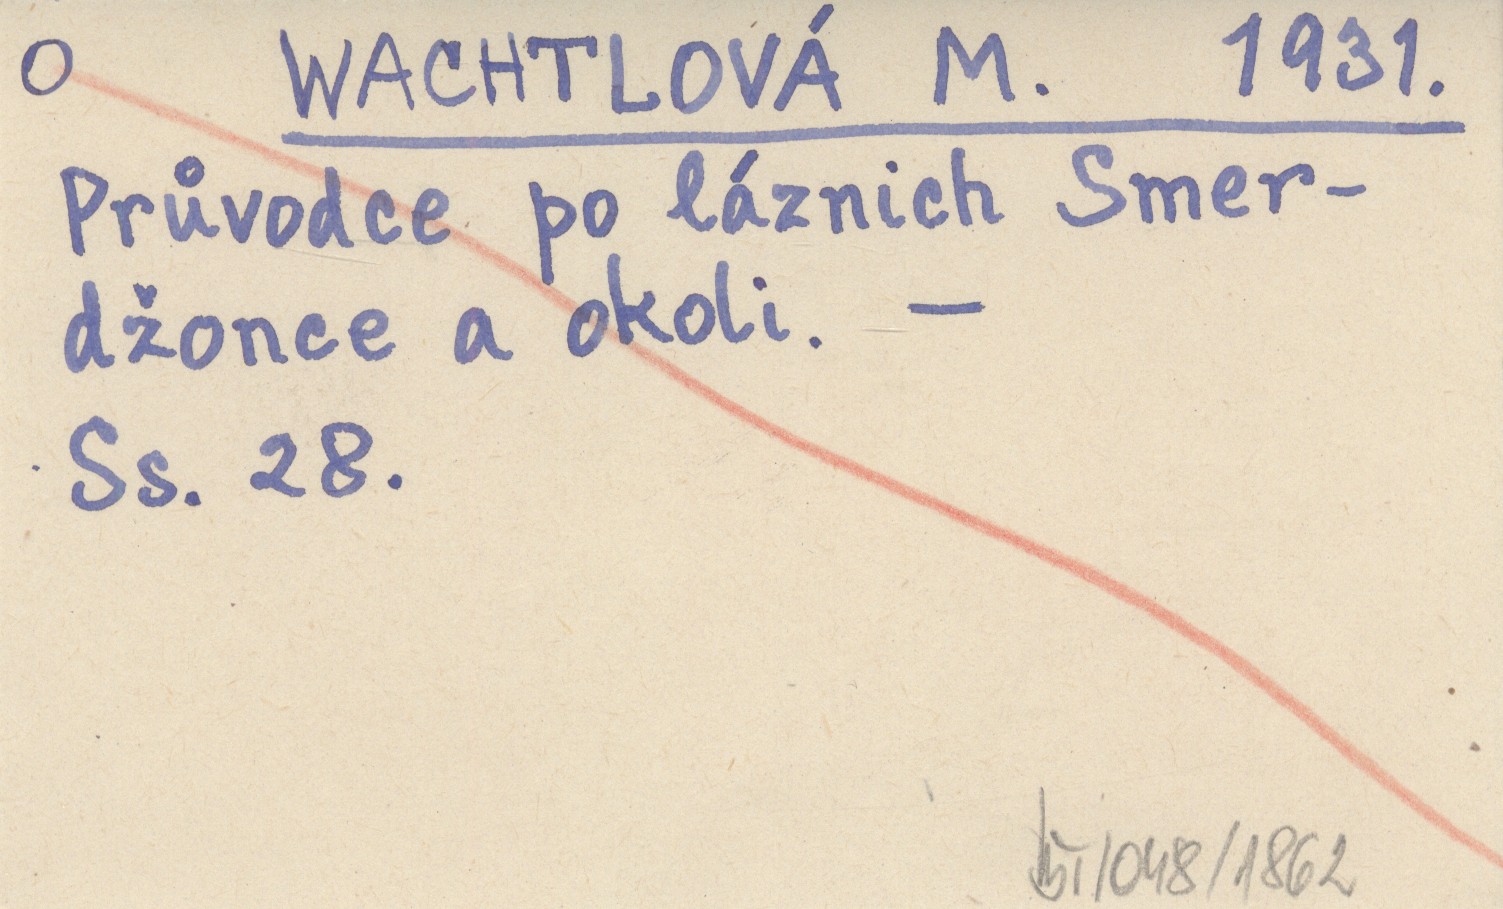 O WACHTLOVÁ M. 1931.
Průvodce po láznich Smer-
džonce a okoli. —
Ss. 28.
/048/1862